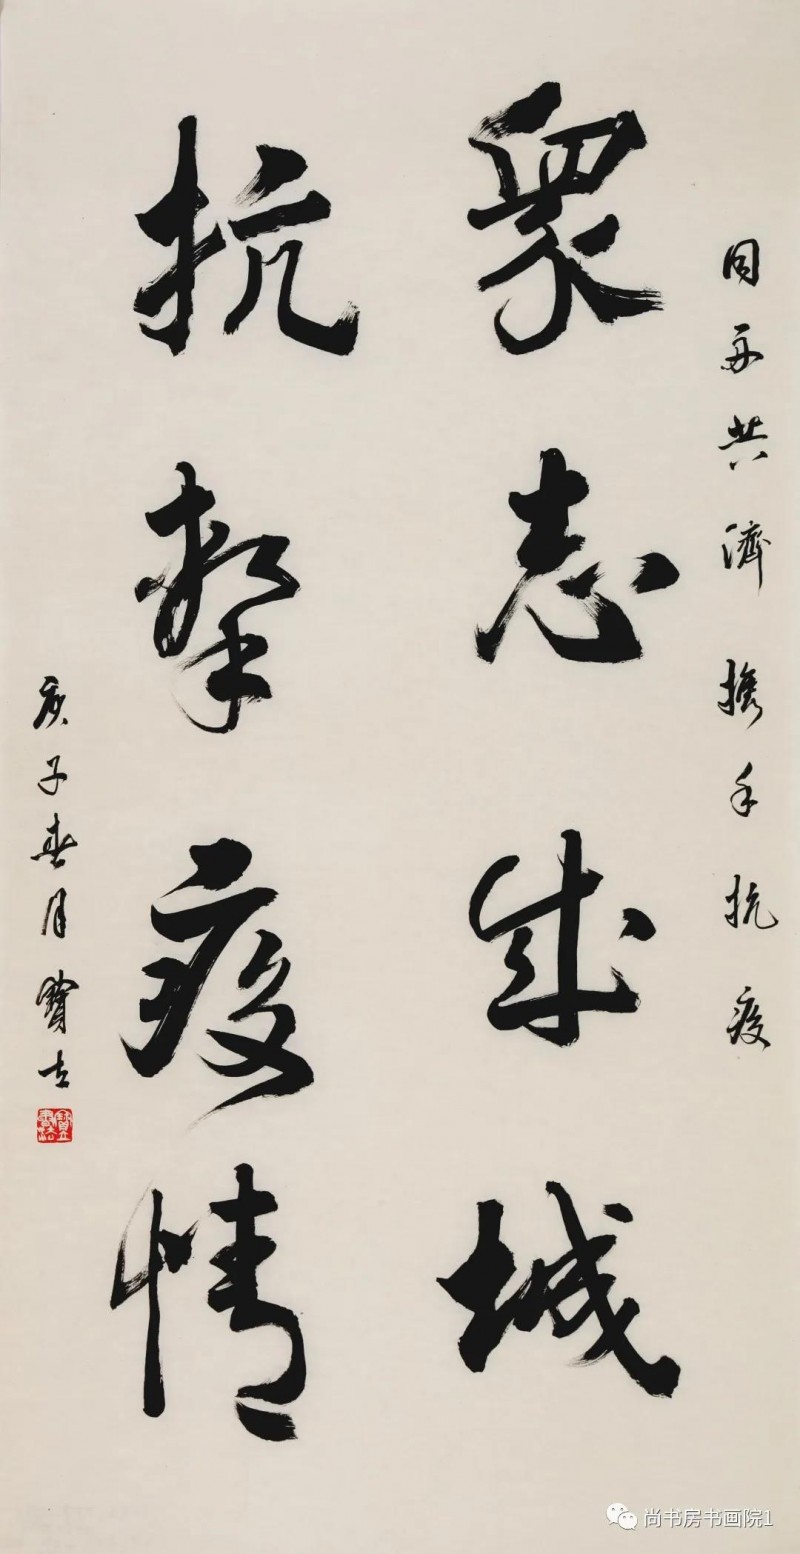 同舟共濟攜手抗疫
眾志成城
抗擊疫情
庚子春月寶立
寶立書印
尚书房书画院1